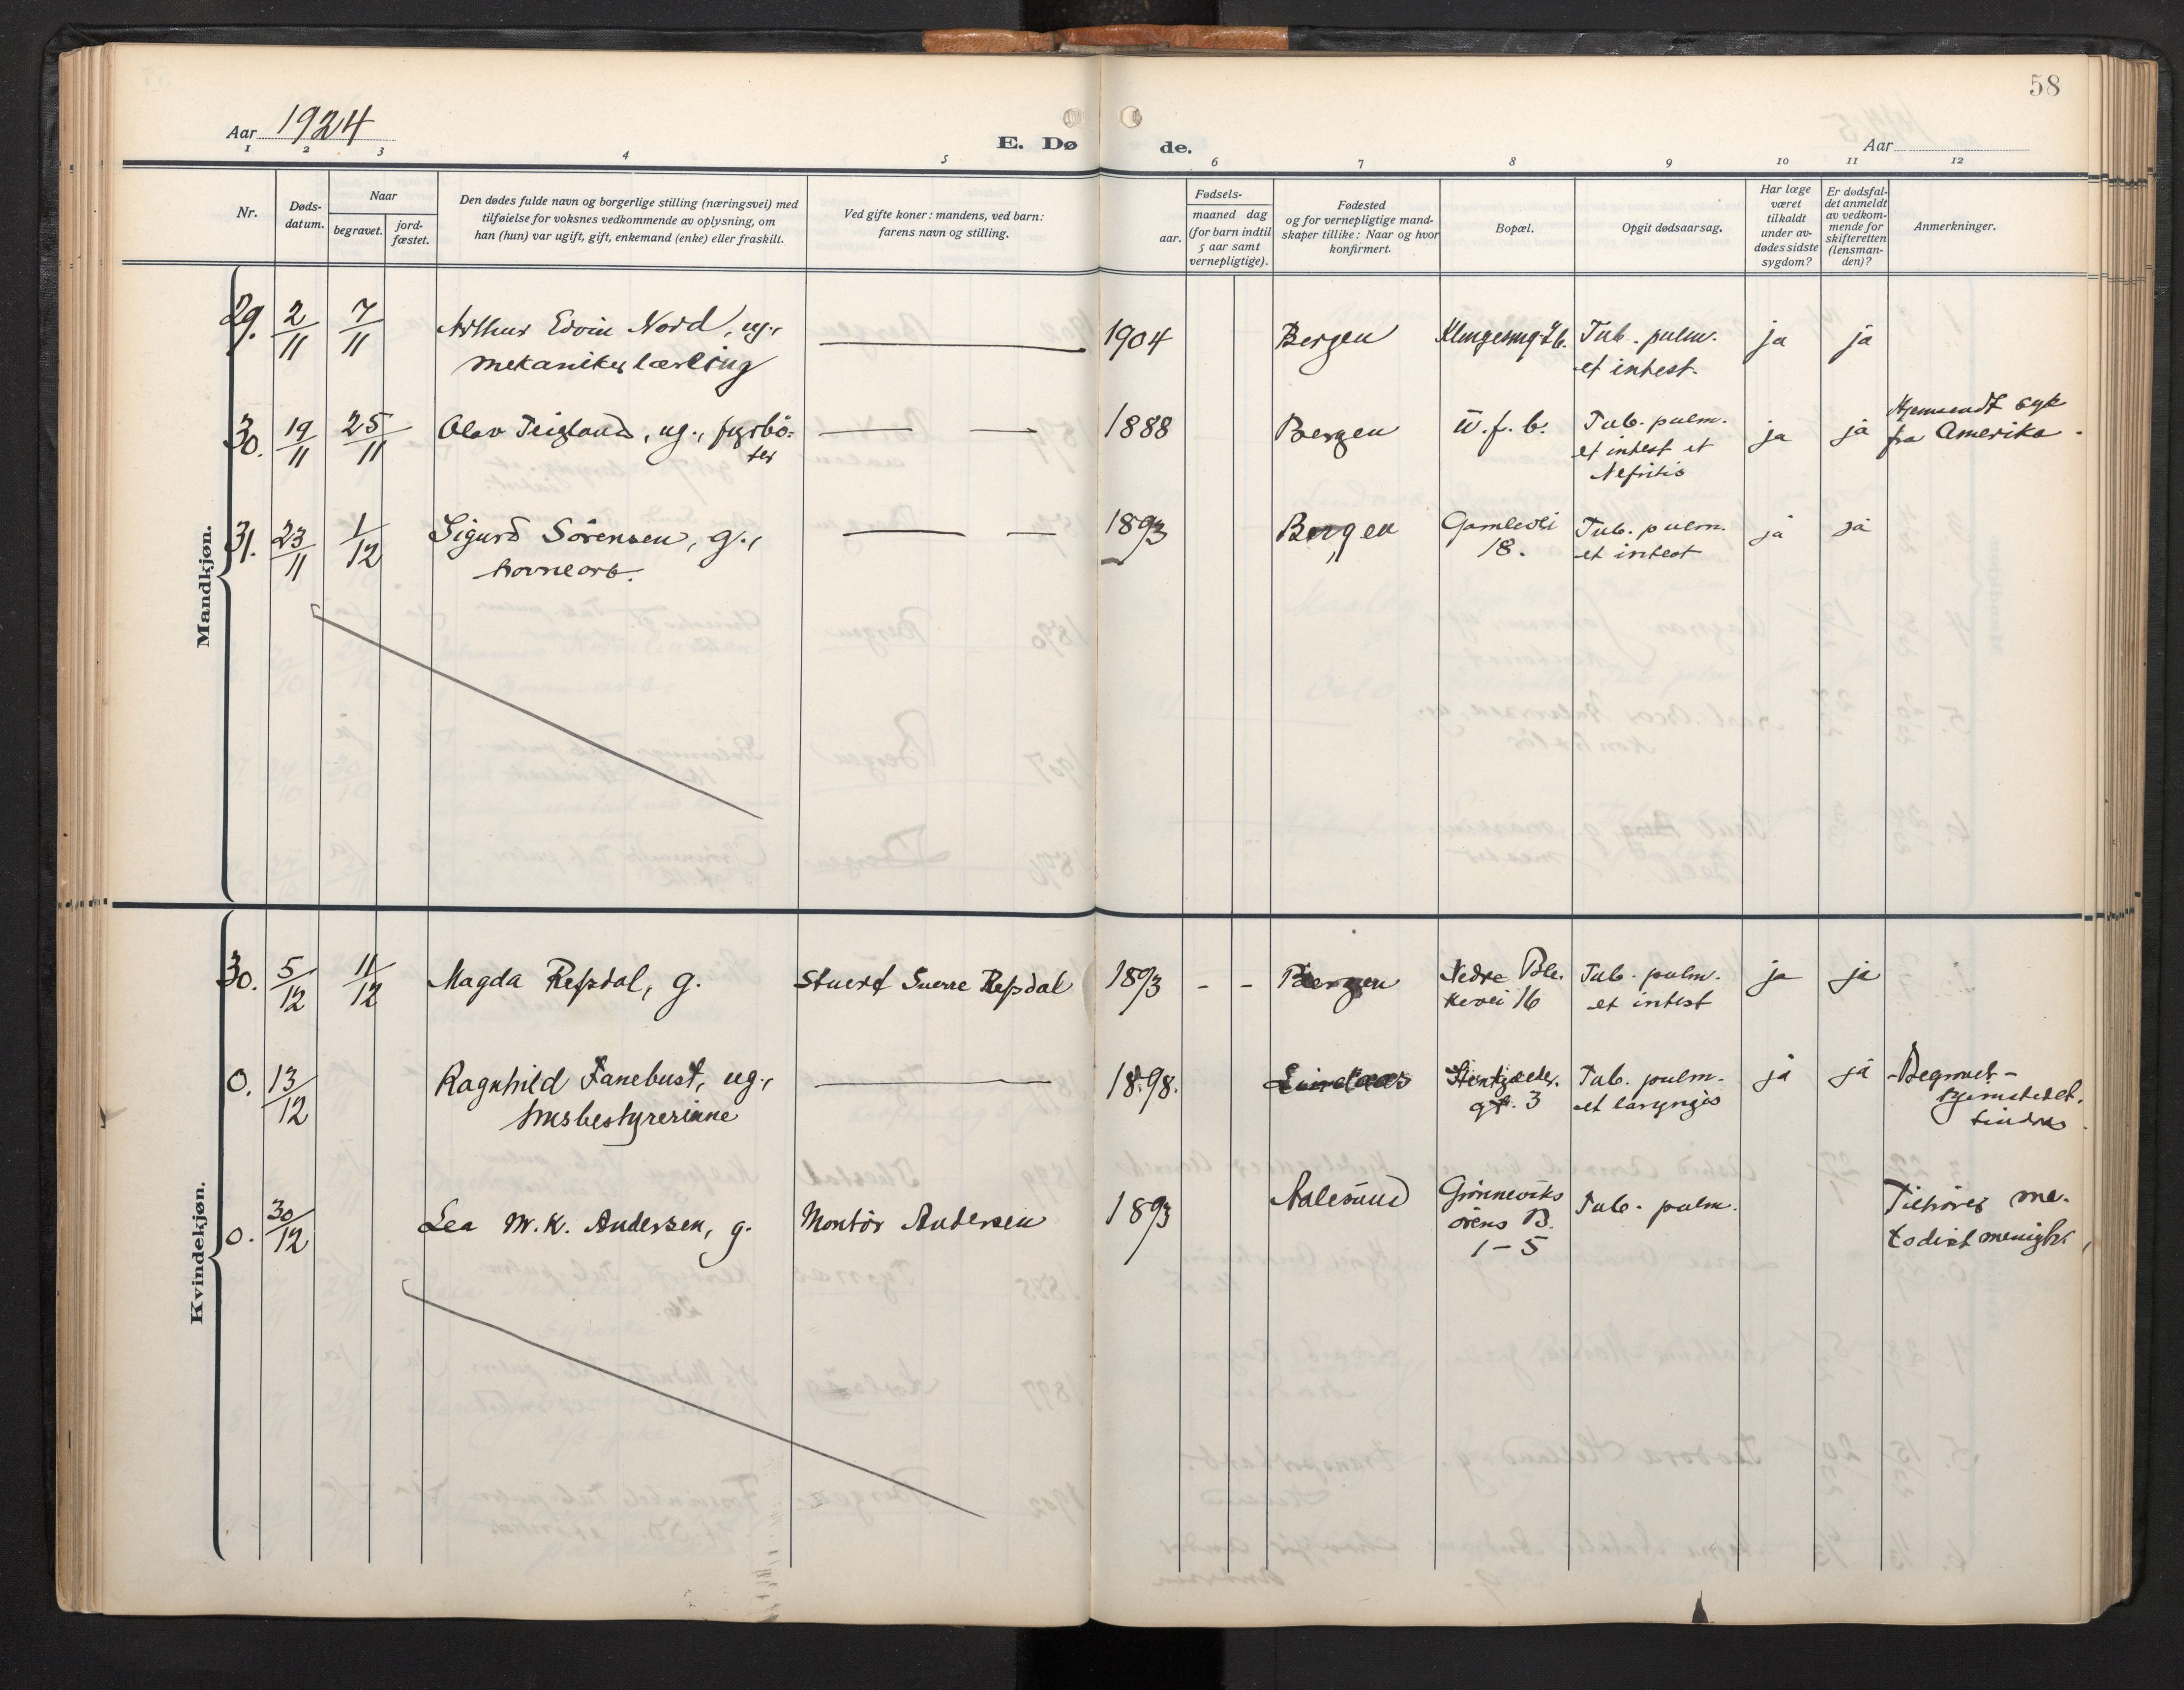 58
Aar 1924
E. Dø
de.
Aar
1 2 3 4 5 6 7 8 9 10 11 12
Nr.
Døds-
datum.
Naar
begravet.
jord-
fæstet.
Den dødes fulde navn og borgerlige stilling (næringsvei) med
tilføielse for voksnes vedkommende av oplysning, om
han (hun) var ugift, gift, enkemand (enke) eller fraskilt.
Ved gifte koner: mandens, ved barn:
farens navn og stilling.
Fødsels-
aar.
maaned dag
(for barn indtil
5 aar samt
vernepligtige).
Fødested
og for vernepligtige mand-
skaper tillike: Naar og hvor
konfirmert.
Bopæl.
Opgit dødsaarsag.
Har læge
været
tilkaldt
under av-
dødes sidste
sygdom?
Er dødsfal-
det anmeldt
av vedkom-
mende for
skifteretten
(lensman-
den)?
Anmerkninger.
Mandkjøn.
29. 2/11 7/11 Arthur Edvin Nord, ug., 1904 Bergen Tub. pulm. ja ja
mekanikerlærling et intest.
30. 19/11 25/11 Olav Teigland, ug., fyrbö- 1888 Bergen U. f. b. Tub. pulm. ja ja Hjemsendt syk
ter et intest et fra Amerika.
Nefritis
31. 23/11 1/12 Sigurd Sörensen, g., 1893 Bergen Gamlevei Tub. pulm. ja ja
havnearb. 18. et intest
Kvindekjøn.
30. 5/12 11/12 Magda Repdal, g. Stuert Sverre Repdal 1893 - - Bergen Nedre Ble- Tub. pulm. ja ja
kevei 16 et intest
0. 13/12 Ragnhild Fanebust, ug., 1898. Lindaas Stentjælder- Tub. pulm. ja ja Begravet
husbestyrerinne gt. 3 et laryngis hjemstedet,
Lindaas
0. 30/12 Lea M. K. Andersen, g. Montör Andersen 1893 Aalesund Grönneviks Tub. pulm. Tilhörer me-
örens B. todist menigh.
1-5